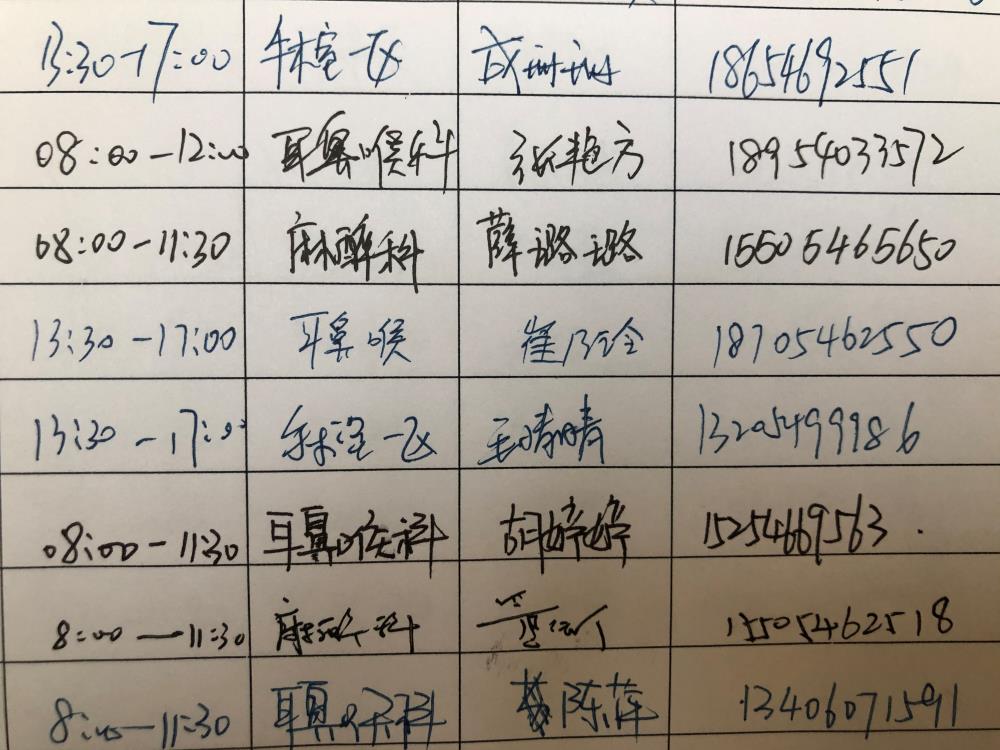 13:30-17:00 手术室一区 18654692551
08:00-12:00 耳鼻喉科 张艳方 18954033572
08:00-11:30 麻醉科 薛璐璐 15505465650
13:30-17:00 耳鼻喉 崔乃铨 18705462550
13:30-17:00 手术室一区 王晴晴 13205499986
08:00-11:30 耳鼻喉科 胡婷婷 15254669563.
8:00-11:30 麻醉科 15505462518
8:00-11:30 耳鼻喉科 陈萍 13406071591